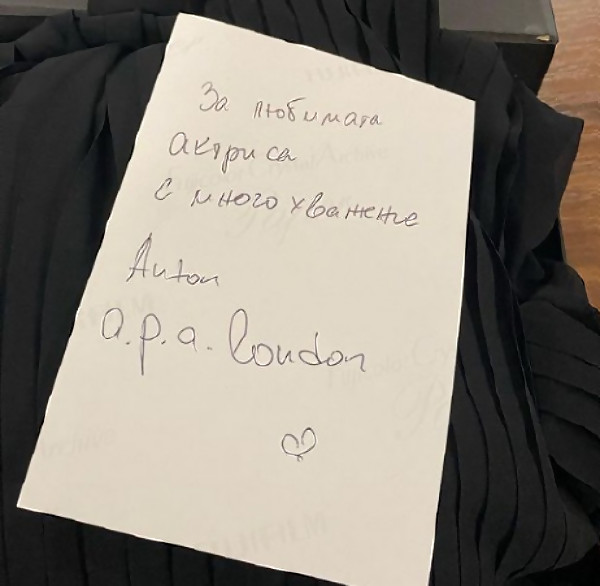 За любимата
актриса
с много уважение
Anton
a.p.a. London